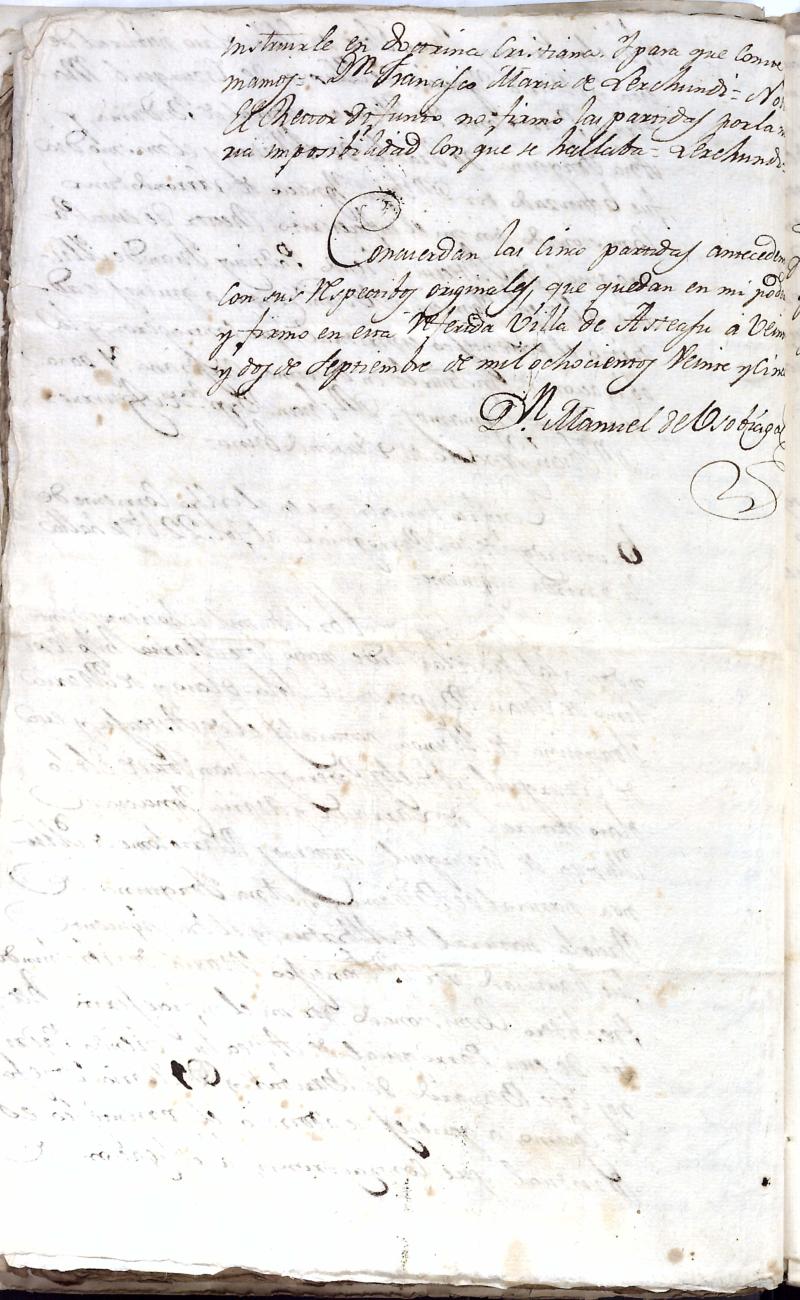 instruirle en doctrina Cristiana. Y para que Conste
mamos = Dn Francisco Maria de Lerchundi = No
El Rector difunto no firmo las partidas por la
ria imposibilidad con que se hallaba = Lerchundi =
Concuerdan las Cinco partidas anteceden
con sus respectibos originales, que quedan en mi pod
y firmo en esta referida Villa de Asteasu á Vein
y dos de Septiembre de mil ochocientos Veinte y Cin
Dn. Manuel de